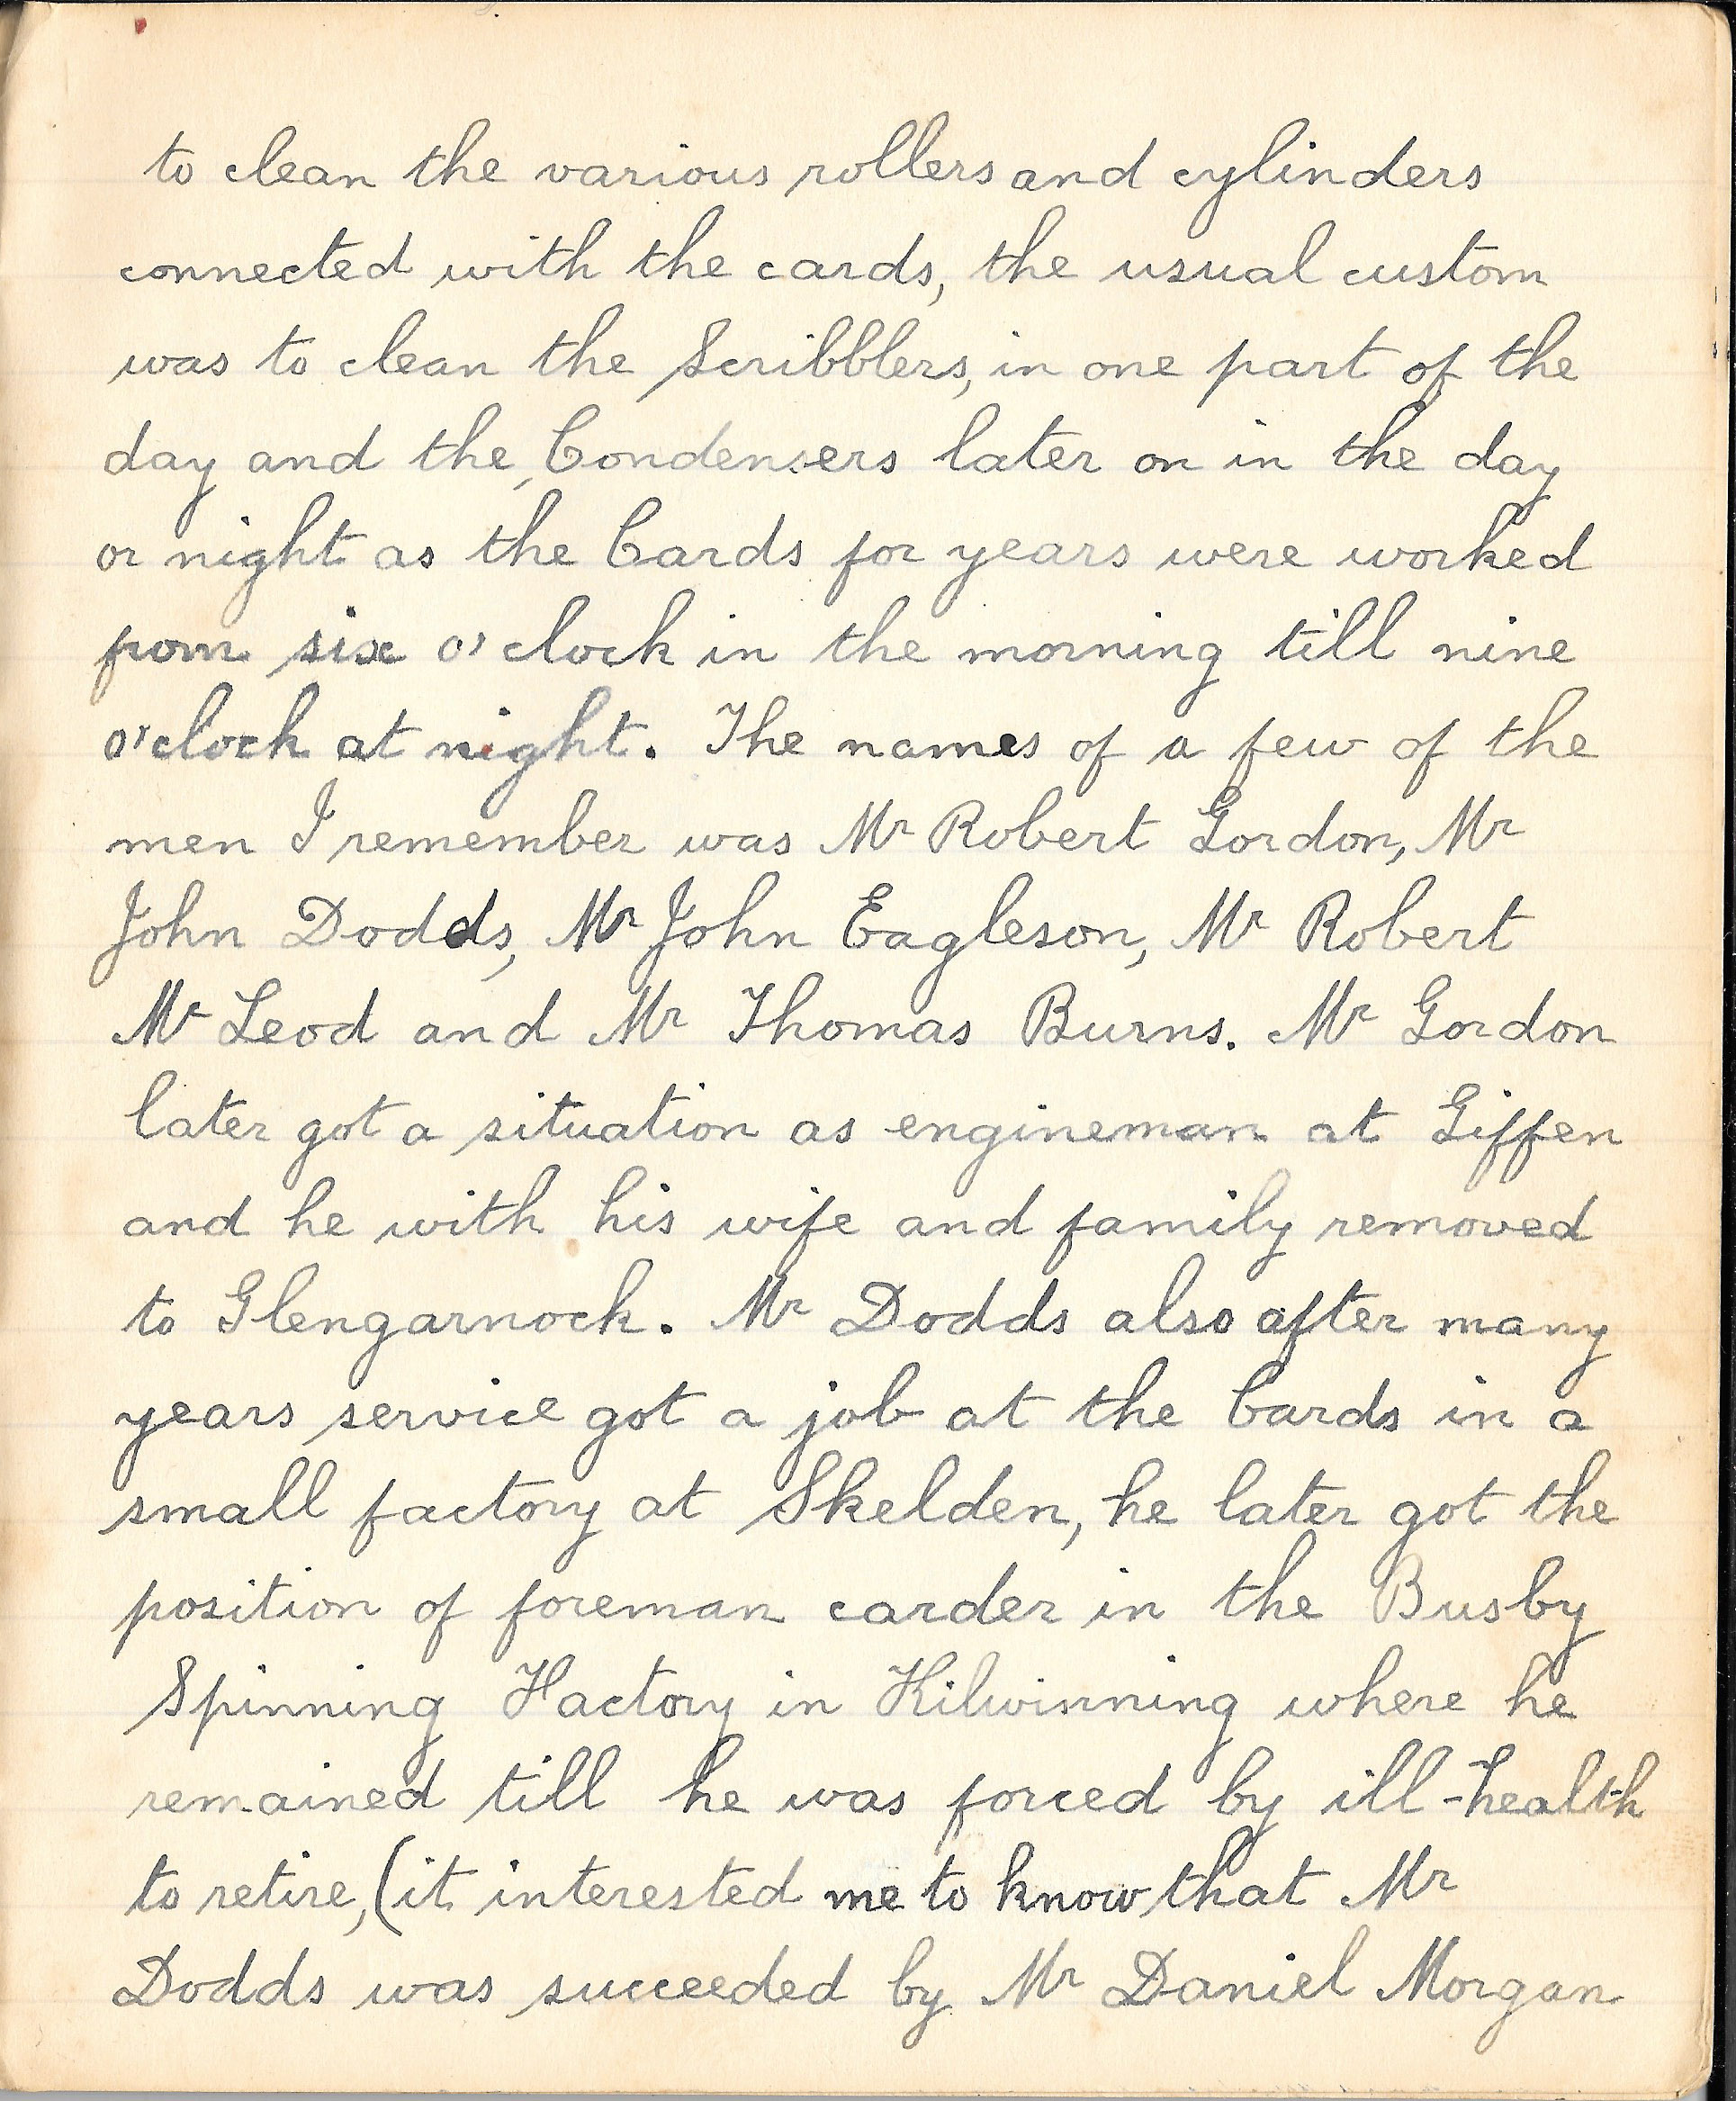 to clean the various rollers and cylinders
connected with the cards, the usual custom
was to clean the Scribblers, in one part of the
day and the, Condensers later on in the day
or night as the Cards for years were worked
from six o'clock in the morning till nine
o'clock at night. The names of a few of the
men I remember was Mr Robert Gordon, Mr
John Dodds, Mr John Eagleson, Mr Robert
Mc Leod and Mr Thomas Burns. Mr Gordon
later got a situation as engineman at Giffen
and he with his wife and family removed
to Glengarnock. Mr Dodds also after many
years service got a job at the Cards in a
small factory at Skelden, he later got the
position of foreman carder in the Busby
Spinning Factory in Kilwinning where he
remained till he was forced by ill-health
to retire, (it interested me to know that Mr
Dodds was succeeded by Mr Daniel Morgan